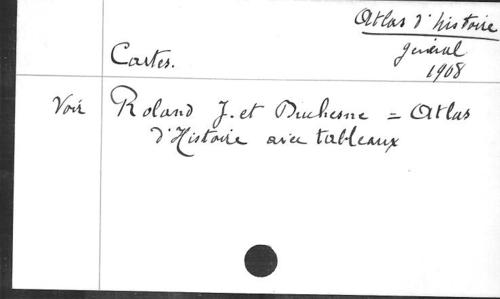 Atlas d'histoire
général
1908
Cartes.
Voir Roland J. et Duchesne = Atlas
d'Histoire avec tableaux